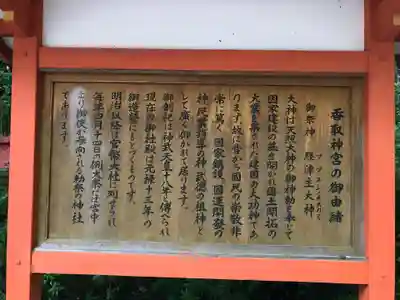 香取神宮の御由緒
御祭神 經津主大神
フツヌシノオオカミ
大神は天照大神の御神勅を奉じて
国家建設の基を開かれ国土開拓の
大業を果された建国の大功神であ
ります。故に昔から国民の崇敬非
常に篤く国家鎮護、国運開発の
神、民業指導の神、武徳の祖神と
して廣く仰がれて居ります。
御創祀は神武天皇十八年と傳へられ
現在の御社殿は元禄十三年の
御造営にもとづくものです。
明治以後は官幣大社に列せられ
毎年四月十四日の例大祭には宮中
より御使が参向される勅祭の神社
であります。